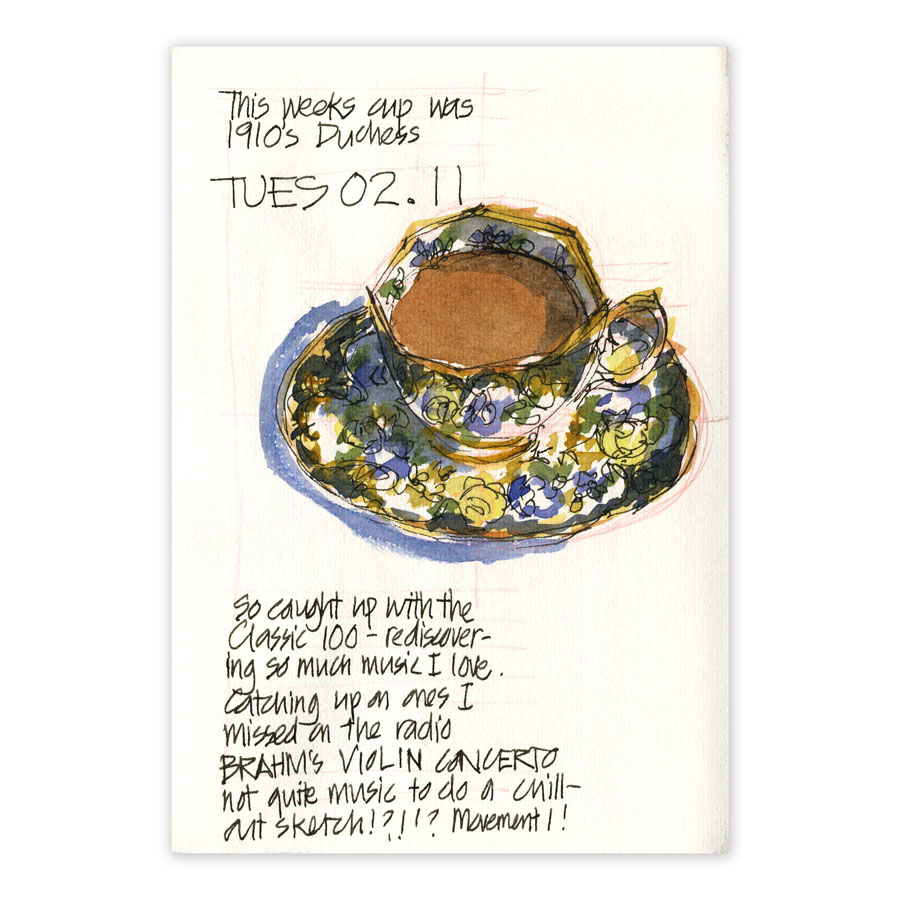 This weeks cup was
1910's Duchess
TUES 02.11
So caught up with the
Classic 100 - rediscover-
ing so much music I love.
Catching up on ones I
missed on the radio
BRAHM'S VIOLIN CONCERTO
not quite music to do a chill-
out sketch!?!!? Movement 1!